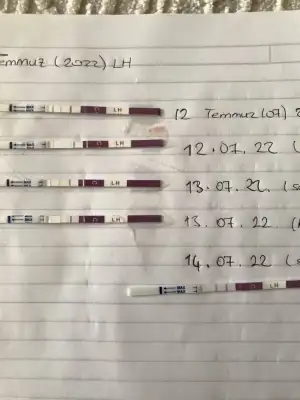 emmuz (2022) LH
LH
12 Temmuz (07) 2
LH
12.07.22 (
LH
13.07.22. (s
LH
13.07.22 (
14.07.22 (s
MAX
MAX
LH